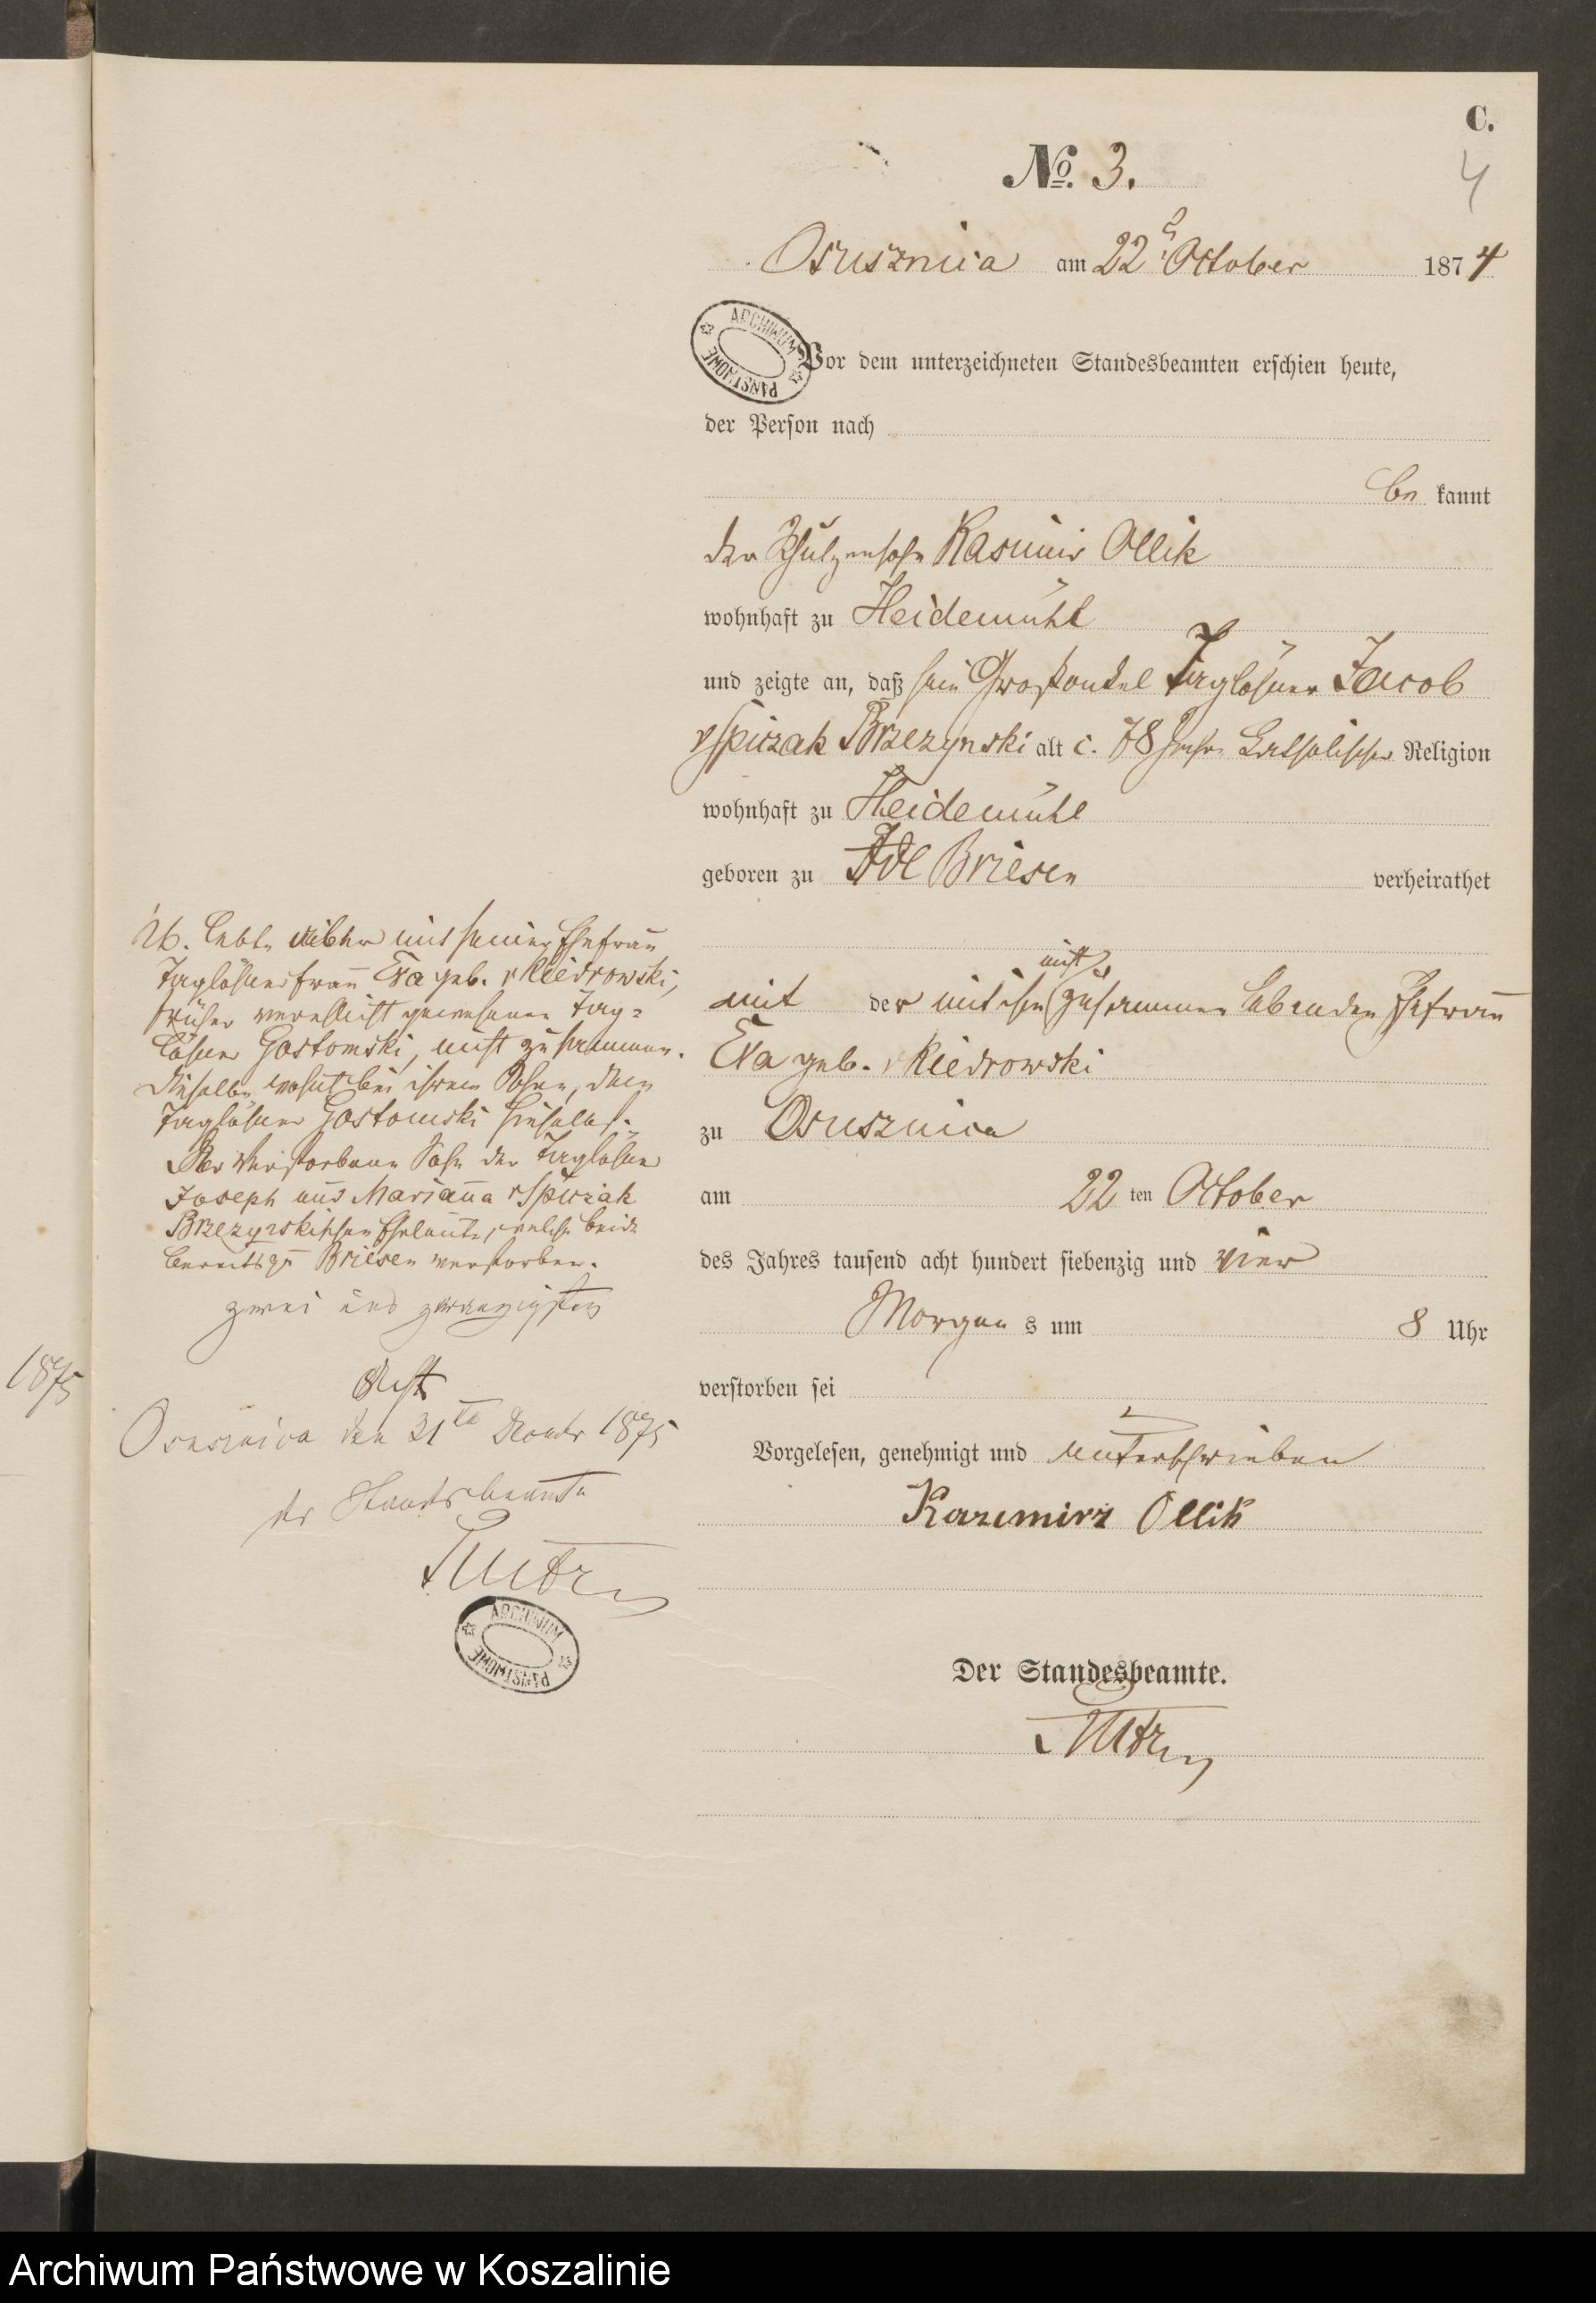 C.
No. 3.
4
Osusznica am 22. October 1874
ARCHIWUM PAŃSTWOWE
Vor dem unterzeichneten Standesbeamten erschien heute,
der Person nach
be kannt
der Schulzensohn Kasimir Ollik
wohnhaft zu Heidemühl
und zeigte an, daß sein Großonkel Taglöhner Jacob
v Spiczak Brzezynski alt c. 78 Jahr katholischer Religion
wohnhaft zu Heidemühl
geboren zu Adl Briesen verheirathet
nicht
mit der mit ihm zusammen lebenden Ehefrau
Eva geb. v Kiedrowski
zu Osusznica
am 22 ten October
des Jahres tausend acht hundert siebenzig und vier
Morgen s um 8 Uhr
verstorben sei
Vorgelesen, genehmigt und unterschrieben
Kazimirz Ollik
Der Standesbeamte.
lebte mit seiner Ehefrau
Taglöhnerfrau Eva geb. v Kiedrowski,
früher verehelicht gewesenen Tag-
löhner Gostomski, nicht zusammen.
Dieselbe wohnt bei ihrem Sohne, dem
Taglöhner Gostomski hieselbst.
Der Verstorbene Sohn der Taglöhner
Joseph und Marianna v Spiczak
Brzezynskischen Eheleute, welche beide
bereits zu Briesen verstorben.
zwei und zwanzigsten
Osusznica den 31ten 1875
der Standesbeamte
ARCHIWUM PAŃSTWOWE
1875
Archiwum Państwowe w Koszalinie